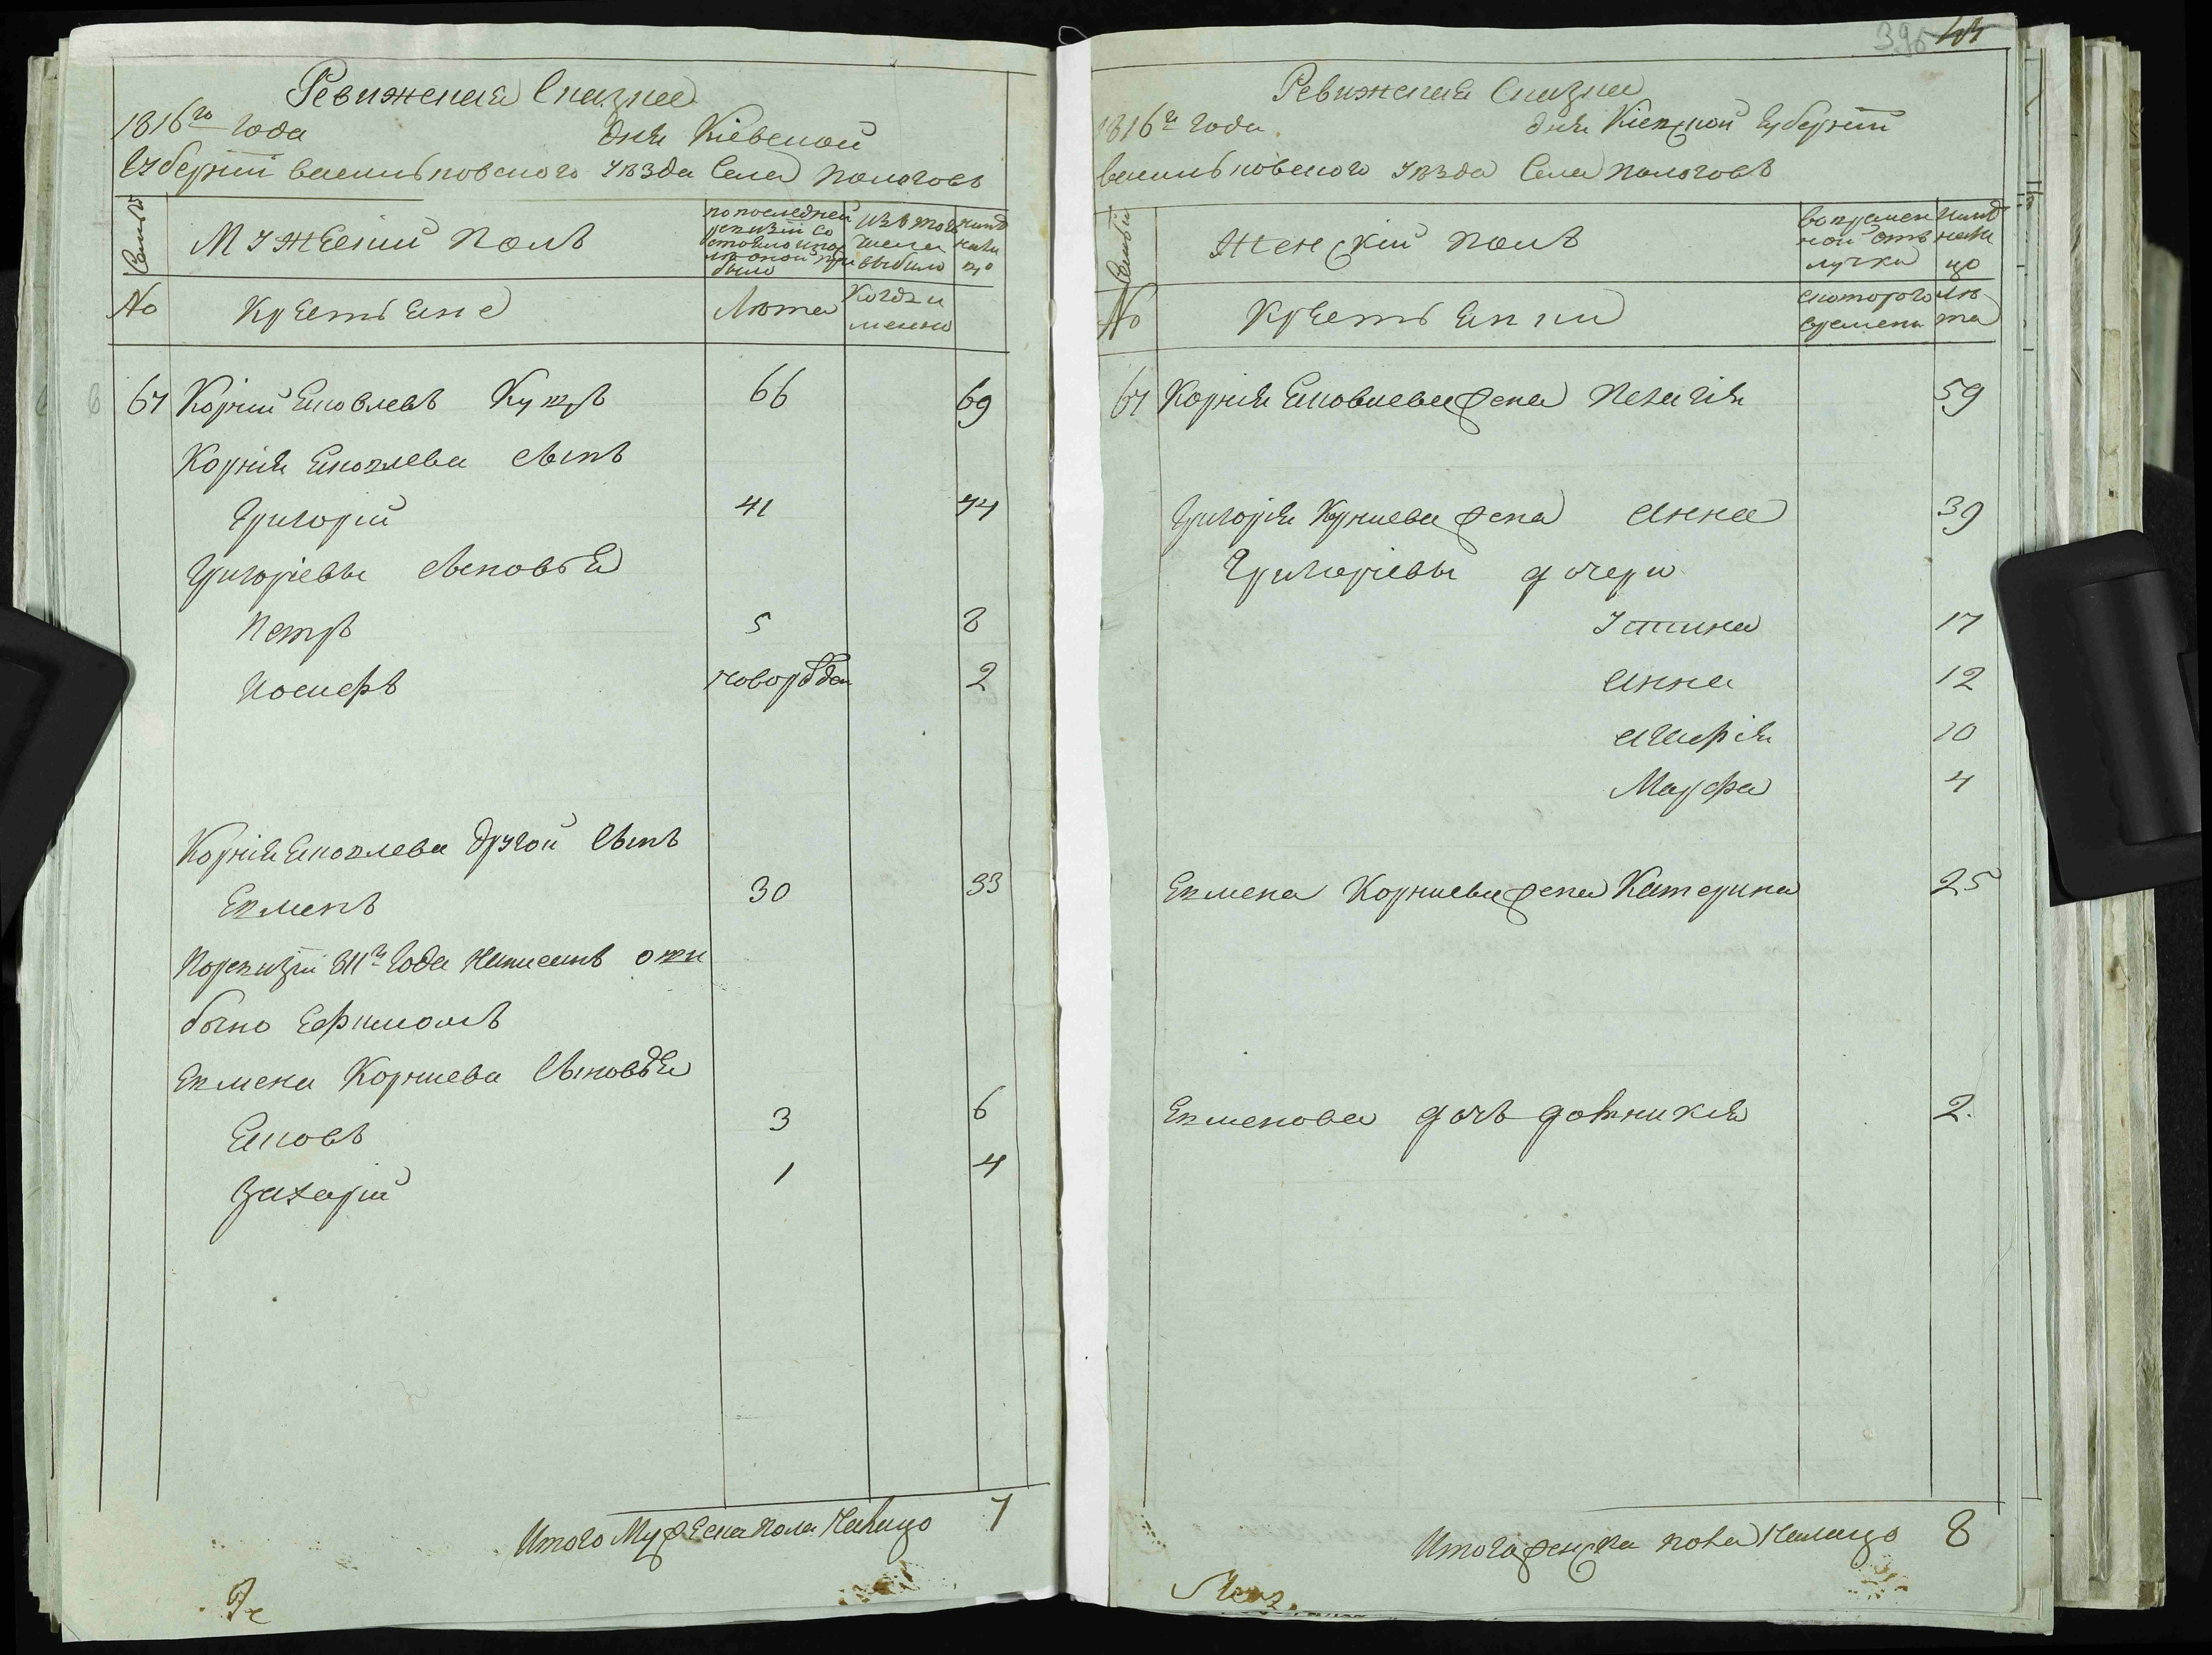 Ревижская Сказка
1816го года дня Кіевской
Губерніи васильковского Уѣзда Села пологовъ
Семьи
МУЖЕскій полъ
по последней ревизіи состояло и после оной прибыло
Изъ того числа выбыло
нынѣ налицо
No
КрестьЕне
Лѣта
Когда именно
67 Корній Ековлевъ 66 69
Корнія Ековлева сынъ
Григорій 41 44
Григоріевы сыновьЕ
Петръ 5 8
Иосифъ новорожден 2
Корнія Ековлева другой сынъ
Екменъ 30 33
По ревизіи 811го Года написанъ ошибочно Ефимомъ
Екмена Корниева сыновьЕ
Ековъ 3 6
Захарій 1 4
Итого Мужеска пола Налицо 7
395
Ревижская Сказка
1816го года дня Кіевской Губерніи
васильковского Уѣзда Села пологовъ
Семьи
Женскій полъ
во временной отлучки
нынѣ налицо
No
КрестьЕнки
с которого времени
лѣта
67 Корнія Ековлева жена Пелагія 59
Григорія Корниева жена Анна 39
Григоріевы дочери
Устина 17
Анна 12
Агафія 10
Марфа 4
Екмена Корниева жена Катерина 25
Екменова дочь домникія 2.
Итого женска пола Налицо 8